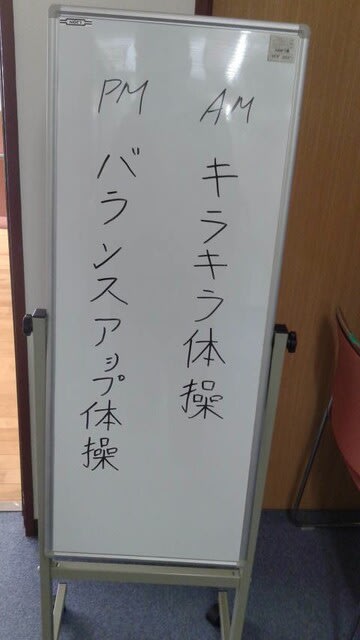 AM
キラキラ体操
PM
バランスアップ体操